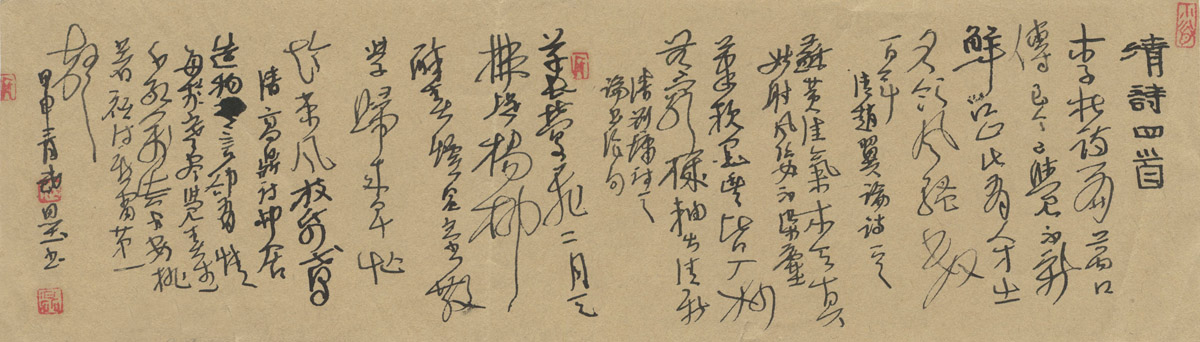 清詩四首
李杜诗篇萬口
傳至今已覺不新
鮮江山代有人才出
各领风骚数
百年
清趙翼論詩之一
蘇黄佳氣本天真
姑射風姿不染塵
筆软墨豐皆入妙
无窮機軸出清新
清刘墉詩之
論書絕句
草長鶯飛二月天
拂堤楊柳
醉春煙兒童散
學歸來早忙
趁東風放紙鳶
清高鼎詩邨居
造物言却有情
每於寒盡覺春生
千紅萬紫安排
著祇待新雷第一
聲
甲申書